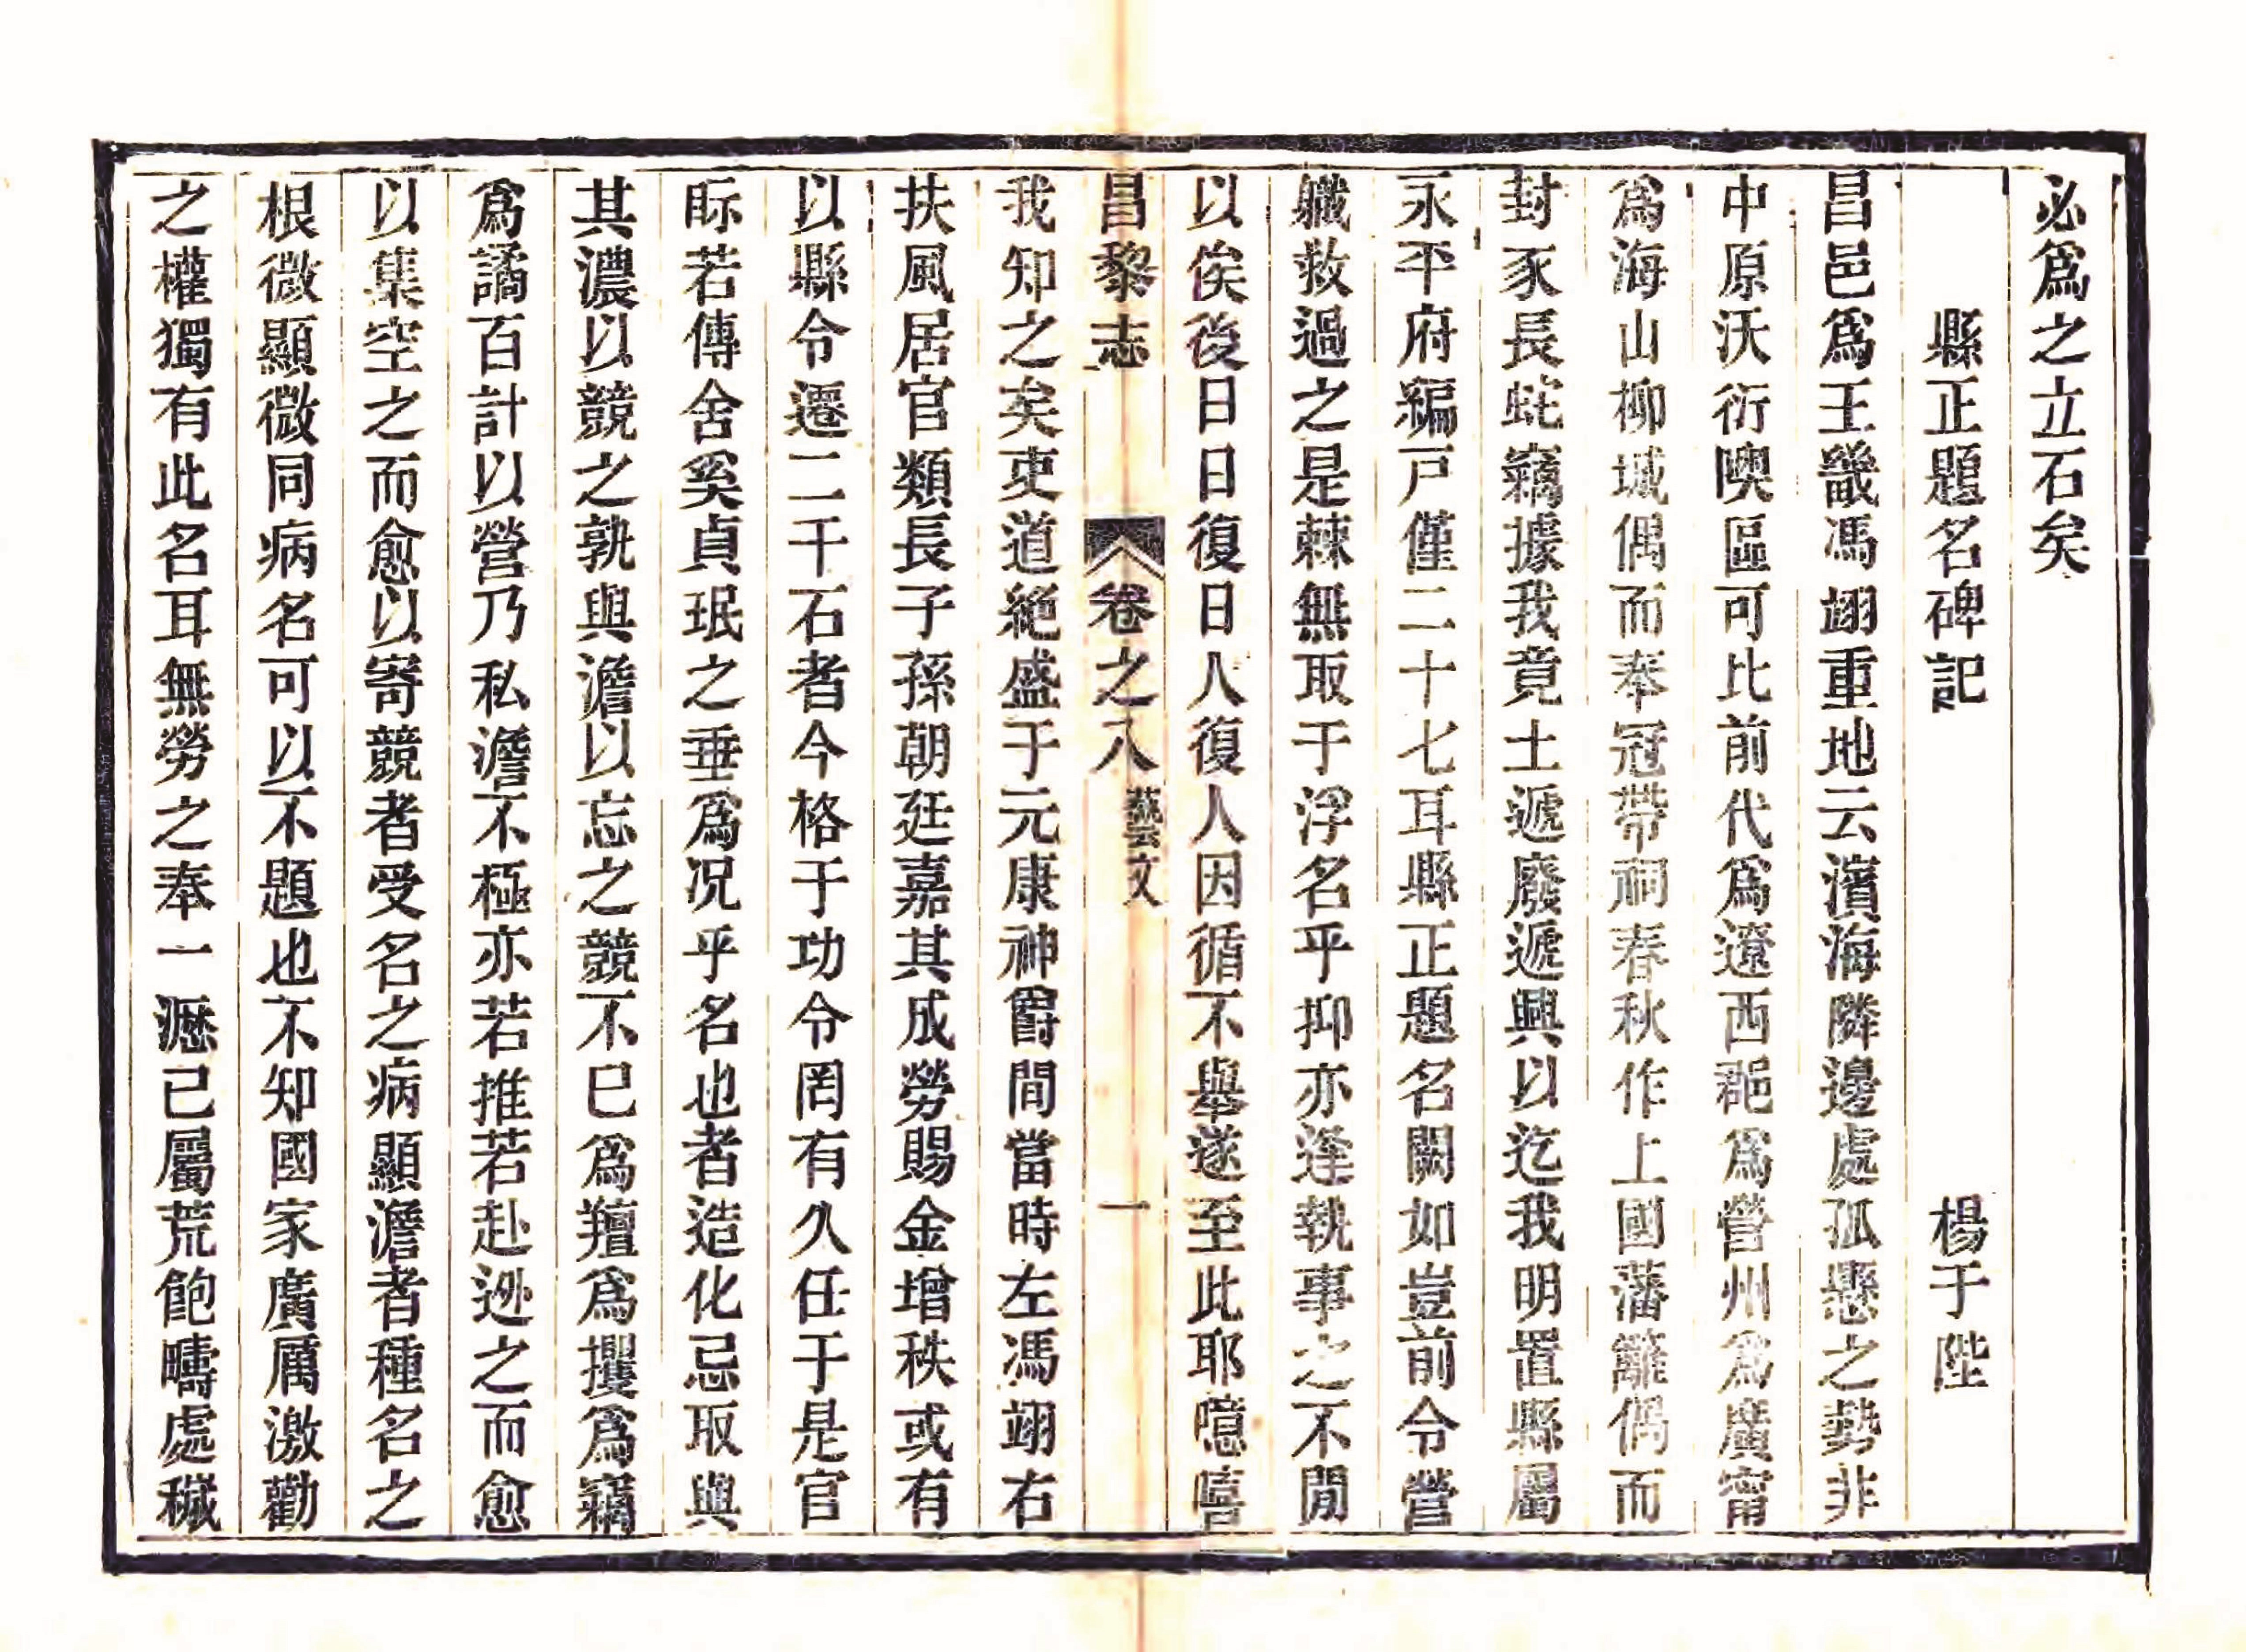 必爲之立石矣
縣正題名碑記 楊于陛
昌邑爲王畿馮翊重地云濱海隣邊處孤懸之勢非
中原沃衍隩區可比前代爲遼西郡爲營州爲廣甯
爲海山柳城偶而奉冠帶祠春秋作上國藩籬偶而
封豕長蛇竊據我竟土遞廢遞興以迄我明置縣屬
永平府編戸僅二十七耳縣正題名闕如豈前令營
職救過之是棘無取于浮名乎抑亦逢執事之不閒
以俟後日日復日人復人因循不舉遂至此耶噫嘻
昌黎志 卷之八 藝文 一
我知之矣吏道絶盛于元康神爵間當時左馮翊右
扶風居官類長子孫朝廷嘉其成勞賜金增秩或有
以縣令遷二千石者今格于功令罔有久任于是官
眎若傳舍奚貞珉之垂爲况乎名也者造化忌取與
其濃以競之孰與澹以忘之競不巳爲羶爲攫爲竊
爲譎百計以營乃私澹不極亦若推若赴逊之而愈
以集空之而愈以寄競者受名之病顯澹者種名之
根微顯微同病名可以不題也不知國家廣厲激勸
之權獨有此名耳無勞之奉一瀝已屬荒飽疇處穢